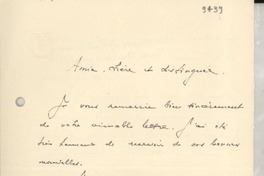 9439
Amie chère et distinguée.
Je vous remercie bien sincèrement
de votre aimable lettre. J'ai été
très heureux de recevoir de vos bonnes
nouvelles.